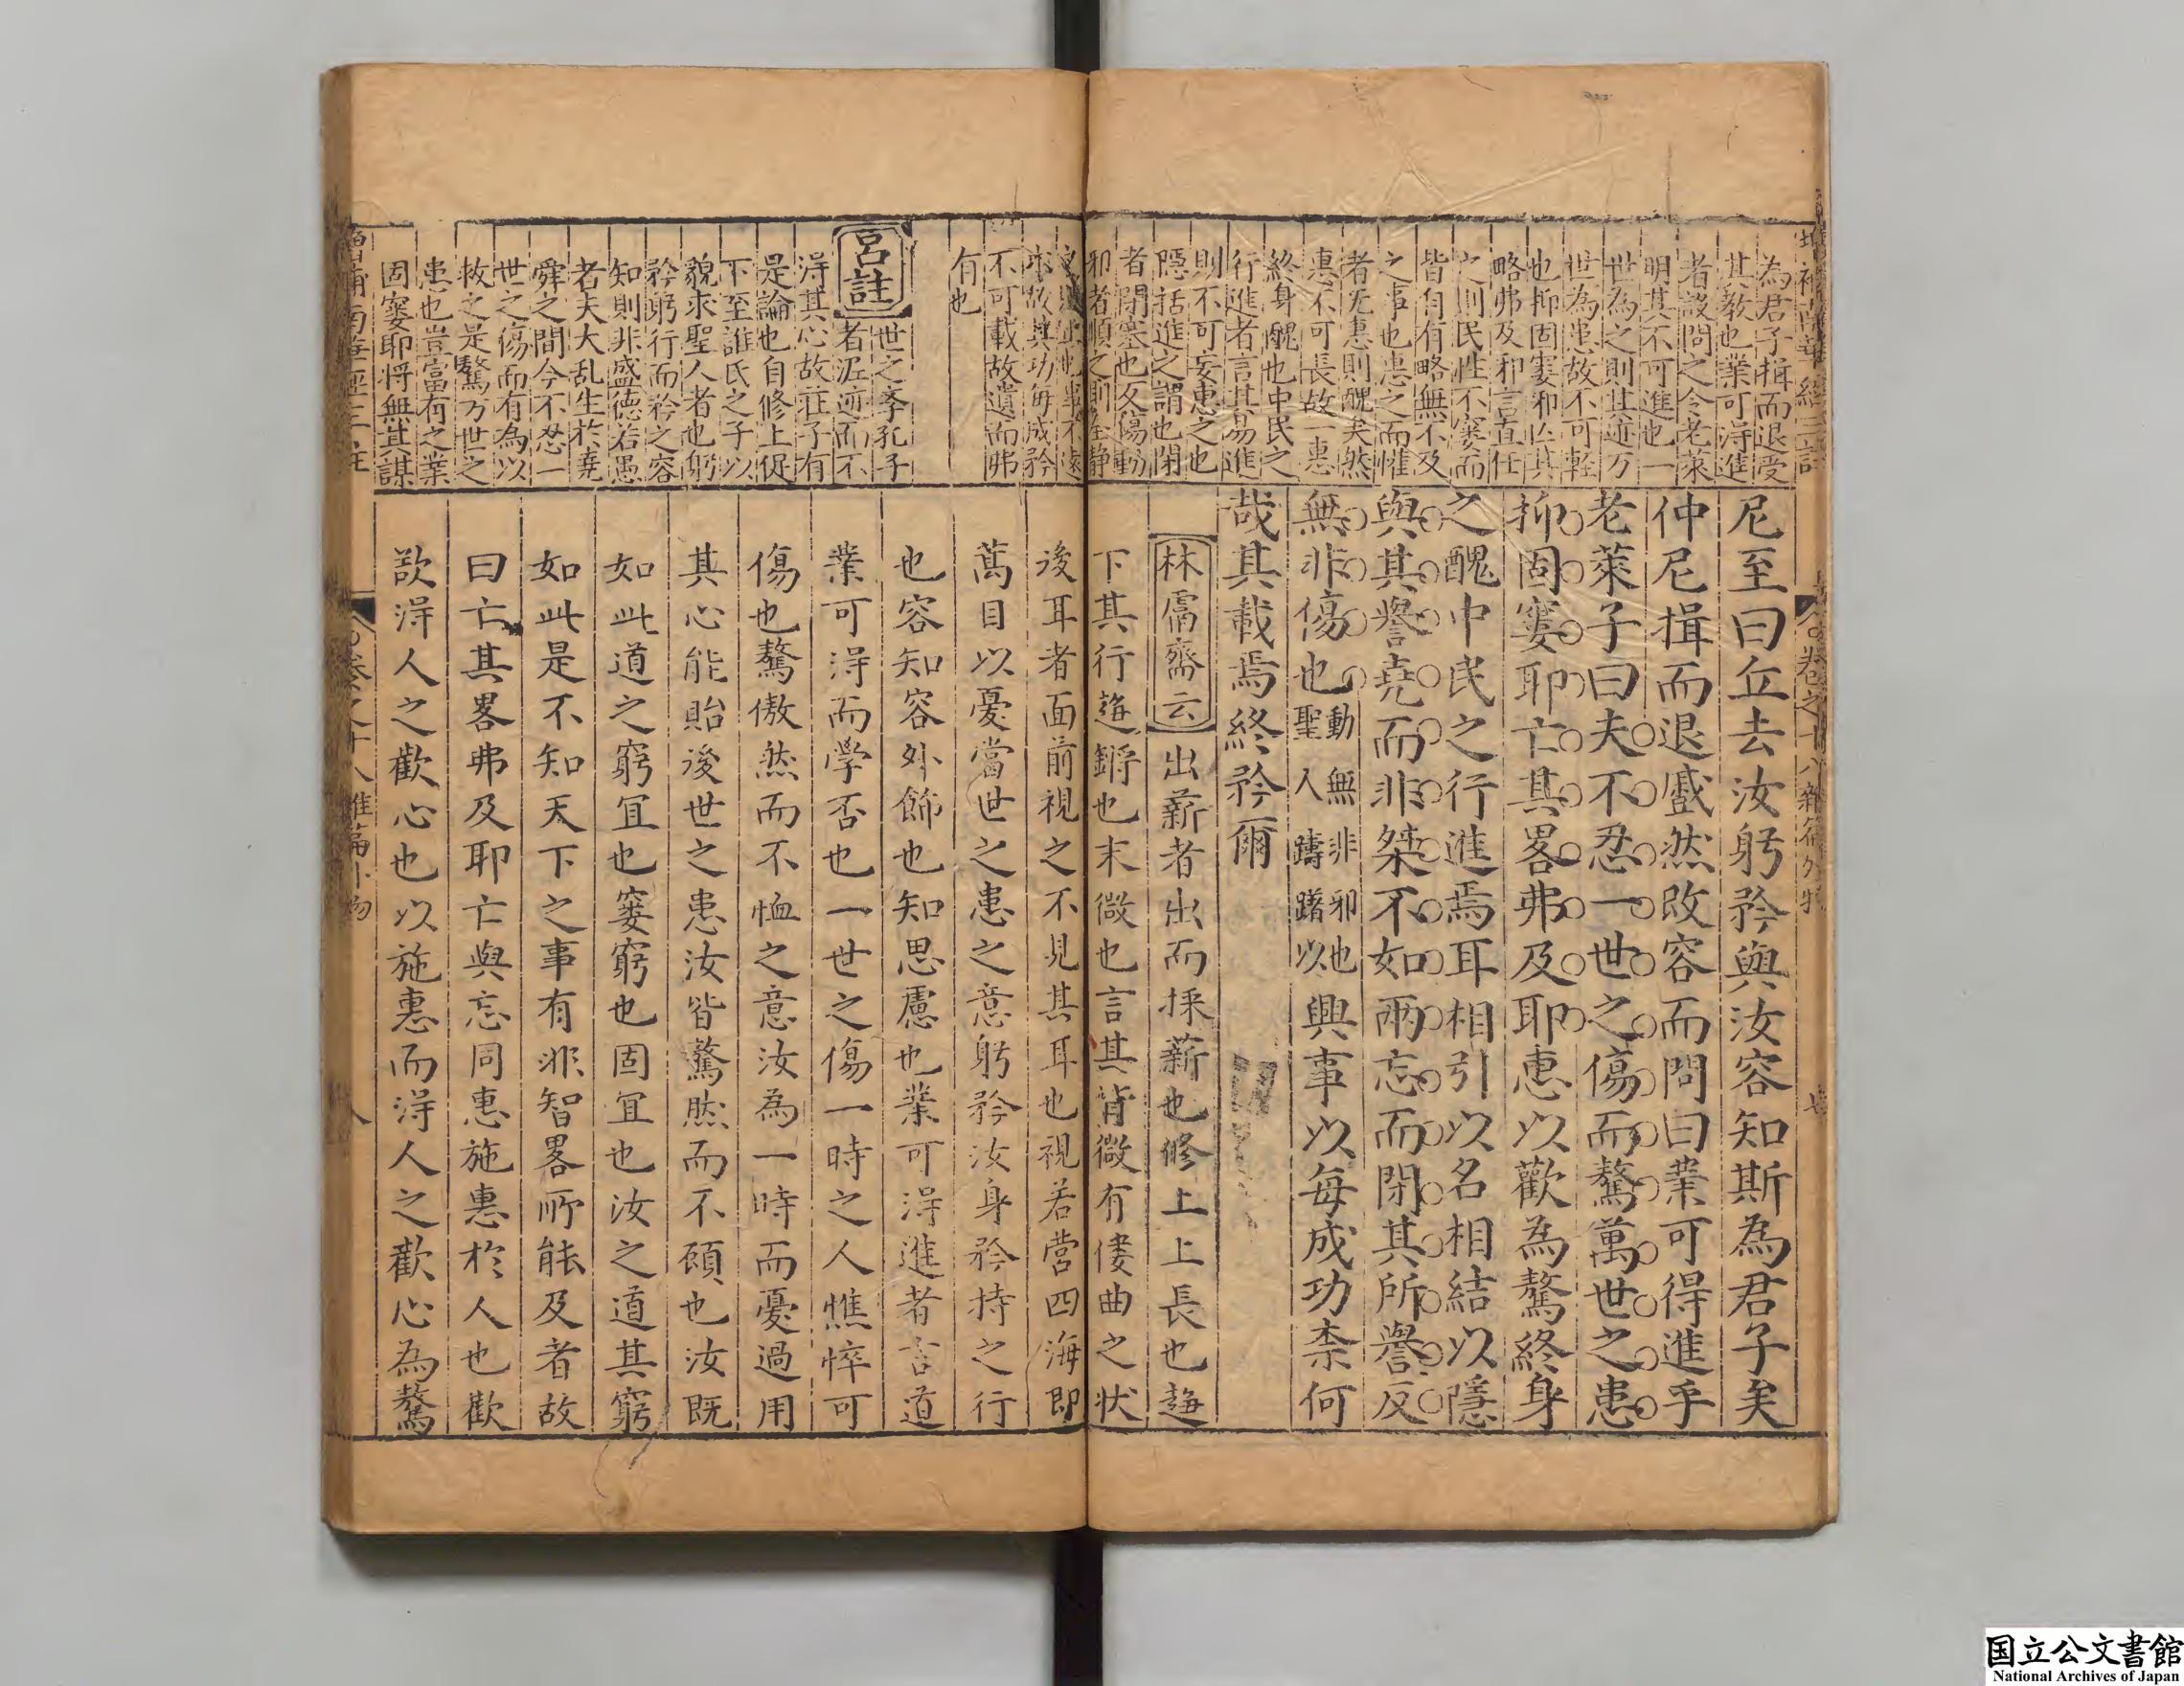 為君子揖而退受
其教也業可淂進
者設問之令老萊
明其不可進也一
世為之則其迹万
世為患故不可輊
也抑固窶和亡其
略弗及和言直任
之則民性不窶而
皆自有略無不及
之事也惠之而惟
者无惠則醜矣然
惠不可長故一惠
終身醜也中民之
行進者言其易進
則不可妄惠之也
隱括進之謂也閉
者閉塞也反傷動
邪者順之則全静
不可載故遺而弗
有也
呂註
世之孝孔子
者泥迹而不
淂其心故莊子有
是論也自修上促
下至誰氏之子以
貌求聖人者也躬
矜躬行而矜之容
知則非盛德若愚
者夫大乱生於堯
舜之間今不忍一
世之傷而有為以
救之是驁万世之
患也豈富有之業
固窶耶将無其謀
尼至曰丘去汝躬矜與汝容知斯為君子矣
仲尼揖而退蹙然改容而問曰業可得進乎
老萊子曰夫不忍一世之傷而驁萬世之患
抑固窶耶亡其畧弗及耶惠以歡為驁終身
之醜中民之行進焉耳相引以名相結以隱
與其譽堯而非桀不如兩忘而閉其所譽反
無非傷也動無非邪也聖人躊躇以興事以每成功柰何
哉其載焉終矜爾
林鬳齋云 出薪者出而採薪也修上上長也趨
下其行趨鏘也末微也言其背微有僂曲之状
後耳者面前視之不見其耳也視若營四海即
萬目以憂當世之患之意躬矜汝身矜持之行
也容知容外飾也知思慮也業可淂進者言道
業可淂而學否也一世之傷一時之人憔悴可
傷也驁傲然而不恤之意汝為一時而憂過用
其心能貽後世之患汝皆驁然而不顧也汝既
如此道之窮宜也窶窮也固宜也汝之道其窮
如此是不知天下之事有非智畧所能及者故
曰亡其畧弗及耶亡與忘同惠施惠於人也歡
歆淂人之歡心也以施惠而淂人之歡心為驁
国立公文書館
National Archives of Japan